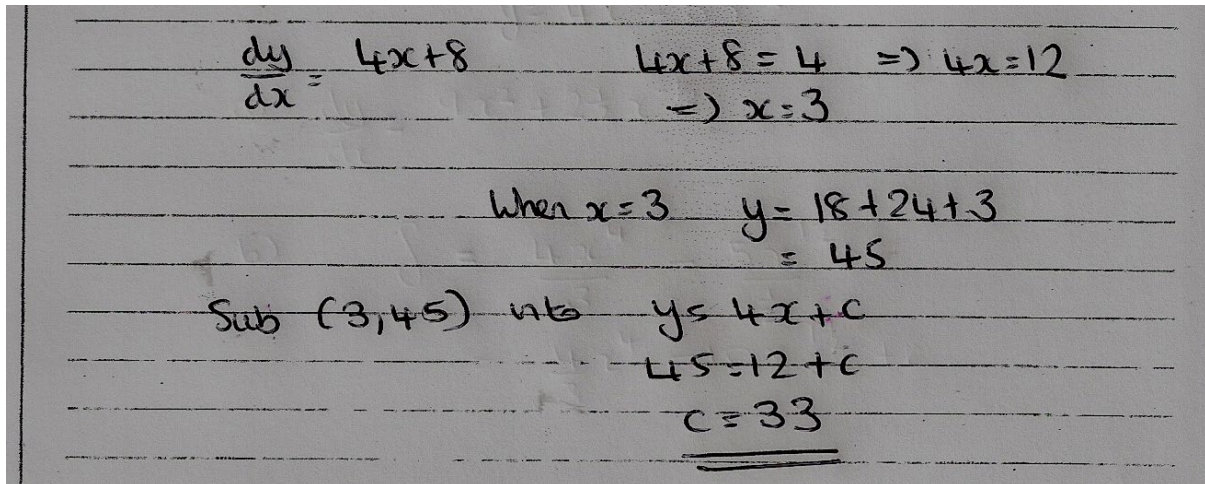 dy/dx = 4x+8 4x+8 = 4 => 4x=12
=> x=3
When x=3 y= 18+24+3
= 45
Sub (3,45) into y= 4x+c
45=12+c
c=33